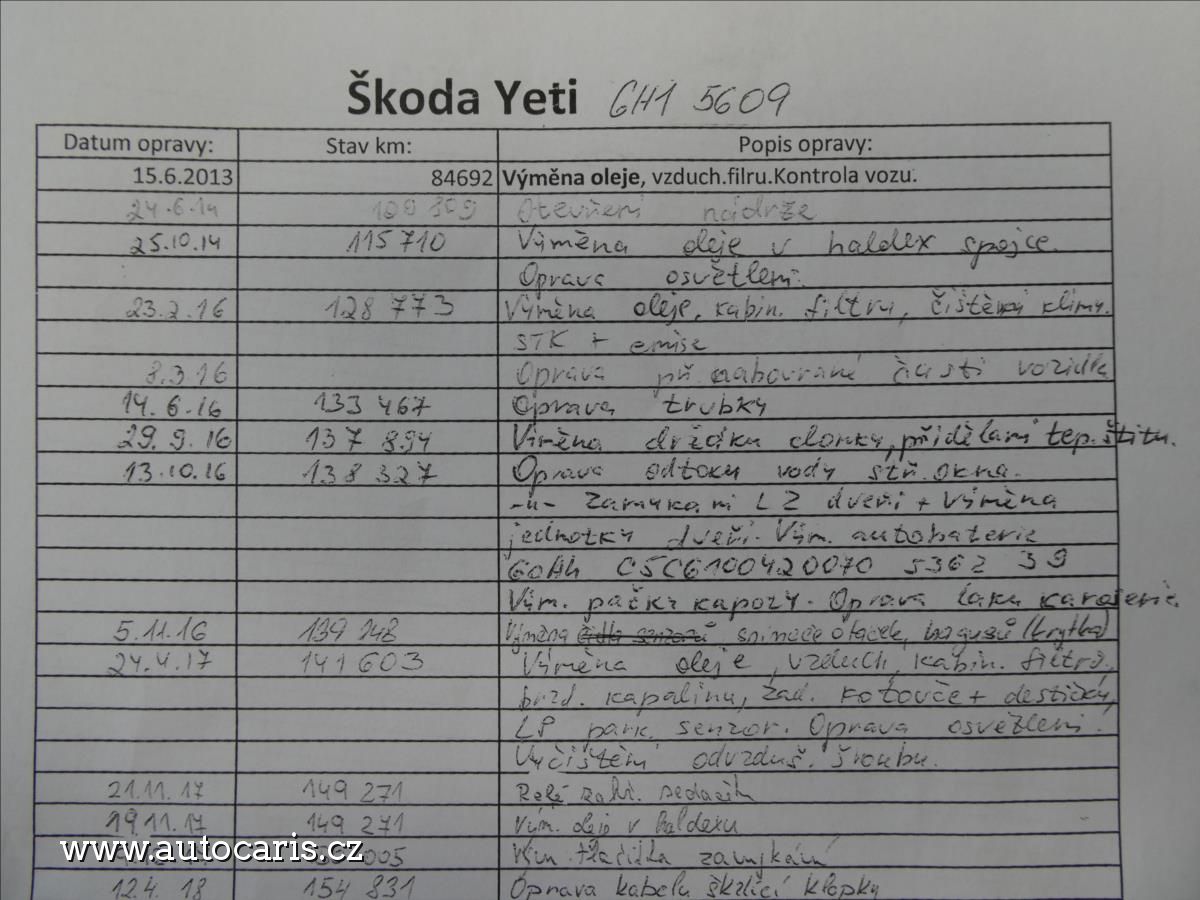 Škoda Yeti 6H1 5609
Datum opravy: Stav km: Popis opravy:
15.6.2013 84692 Výměna oleje, vzduch.filru.Kontrola vozu.
24.6.14 100 809 Otevření nádrže
25.10.14 115 710 Výměna oleje v haldex spojce.
Oprava osvětlení.
23.2.16 128 773 Výměna oleje, kabin. filtru, čištění klimy.
STK + emise
8.3.16 Oprava při nabourané části vozidla
14.6.16 133 467 Oprava trubky
29.9.16 137 894 Výměna držáku clonky, přidělaní tep. štítu.
13.10.16 138 327 Oprava odtoku vody stř. okna.
-II- zamykaní LZ dveří + Výměna
jednotky dveří. Vým. autobaterie
60Ah C5C6100420070 5362 39
Vým. páčky kapoty. Oprava laku karoserie.
5.11.16 139 748 Výměna snímače otáček, (krytka)
24.4.17 141 603 Výměna oleje, vzduch, kabin. filtrů,
brzd. kapalinu, zad. kotouče + destičky,
LP park. senzor. Oprava osvětlení.
Vyčištění odvzduš. šroubu.
21.11.17 149 271 Relé sedaček
19.11.17 149 271 Vým. oleje v haldexu
005 Vým. tlačítka zamykání
12.4.18 154 831 Oprava kabelu škrtící klapky
www.autocaris.cz